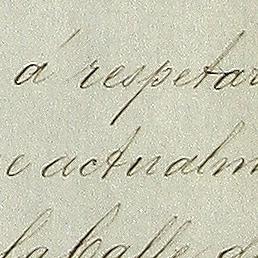 á respetar
e actualm
la halle d